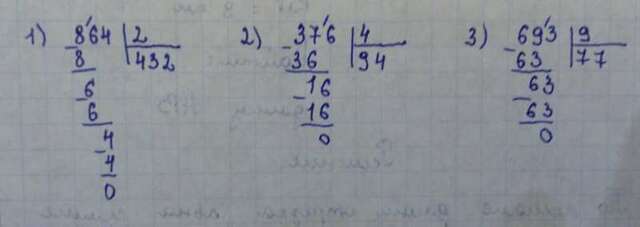 1) 864 | 2
- 8 | 432
- 6
6
- 4
4
0
2) 376 | 4
- 36 | 94
- 16
16
0
3) 693 | 9
- 63 | 77
- 63
63
0